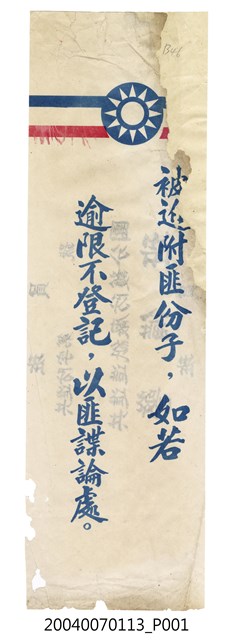 B46
被迫附匪份子，如若
逾限不登記，以匪諜論處。
20040070113_P001